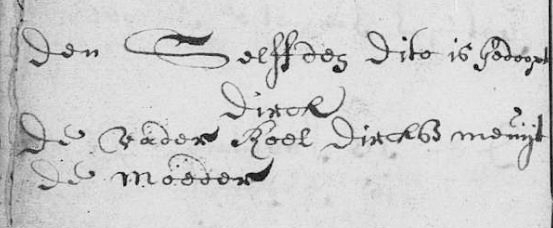 den Selffden dito is gedoopt
dirck
de vader Roel dircks
de moeder